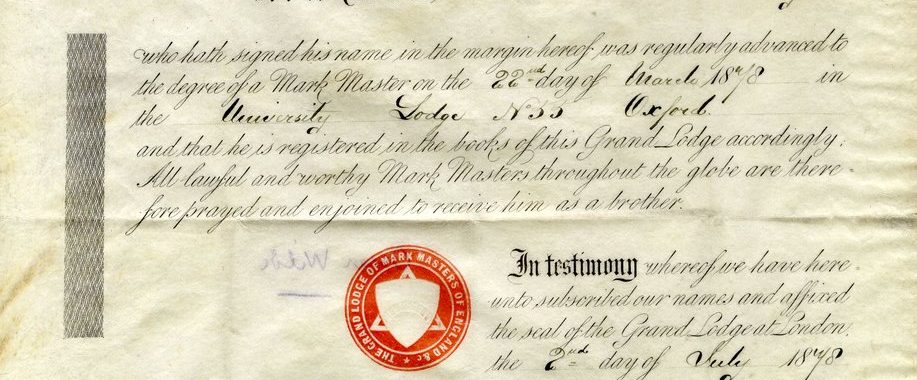 who hath signed his name in the margin hereof was regularly advanced to
the degree of a Mark Master on the 22nd day of March 1878 in
the University Lodge No 55 Oxford.
and that he is registered in the books of this Grand Lodge accordingly;
All lawful and worthy Mark Masters throughout the globe are there-
fore prayed and enjoined to receive him as a brother.
THE GRAND LODGE OF MARK MASTERS OF ENGLAND &c
In testimony whereof we have here-
unto subscribed our names and affixed
the seal of the Grand Lodge at London,
the 2nd day of July 1878